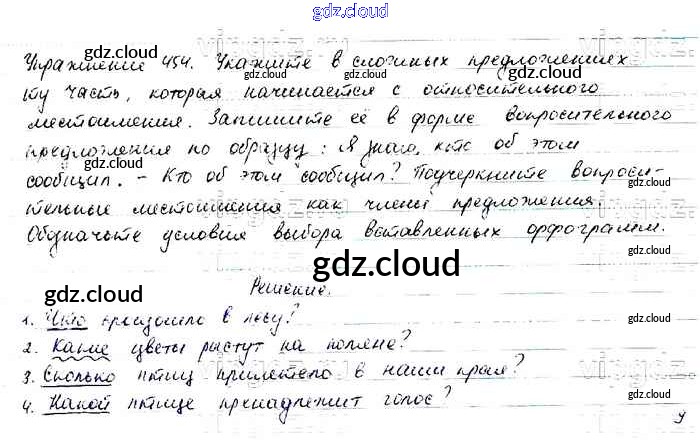 gdz.cloud
Упражнение 454. Укажите в сложных предложениях
ту часть, которая начинается с относительного
местоимения. Запишите её в форме вопросительного
предложения по образцу: Я знаю, кто об этом
сообщил. - Кто об этом сообщил? Подчеркните вопроси-
тельные местоимения как члены предложения.
Обозначьте условия выбора вставленных орфограмм.
gdz.cloud
Решение.
1. Что произошло в лесу?
2. Какие цветы растут на поляне?
3. Сколько птиц прилетело в наши края?
4. Какой птице принадлежит голос?